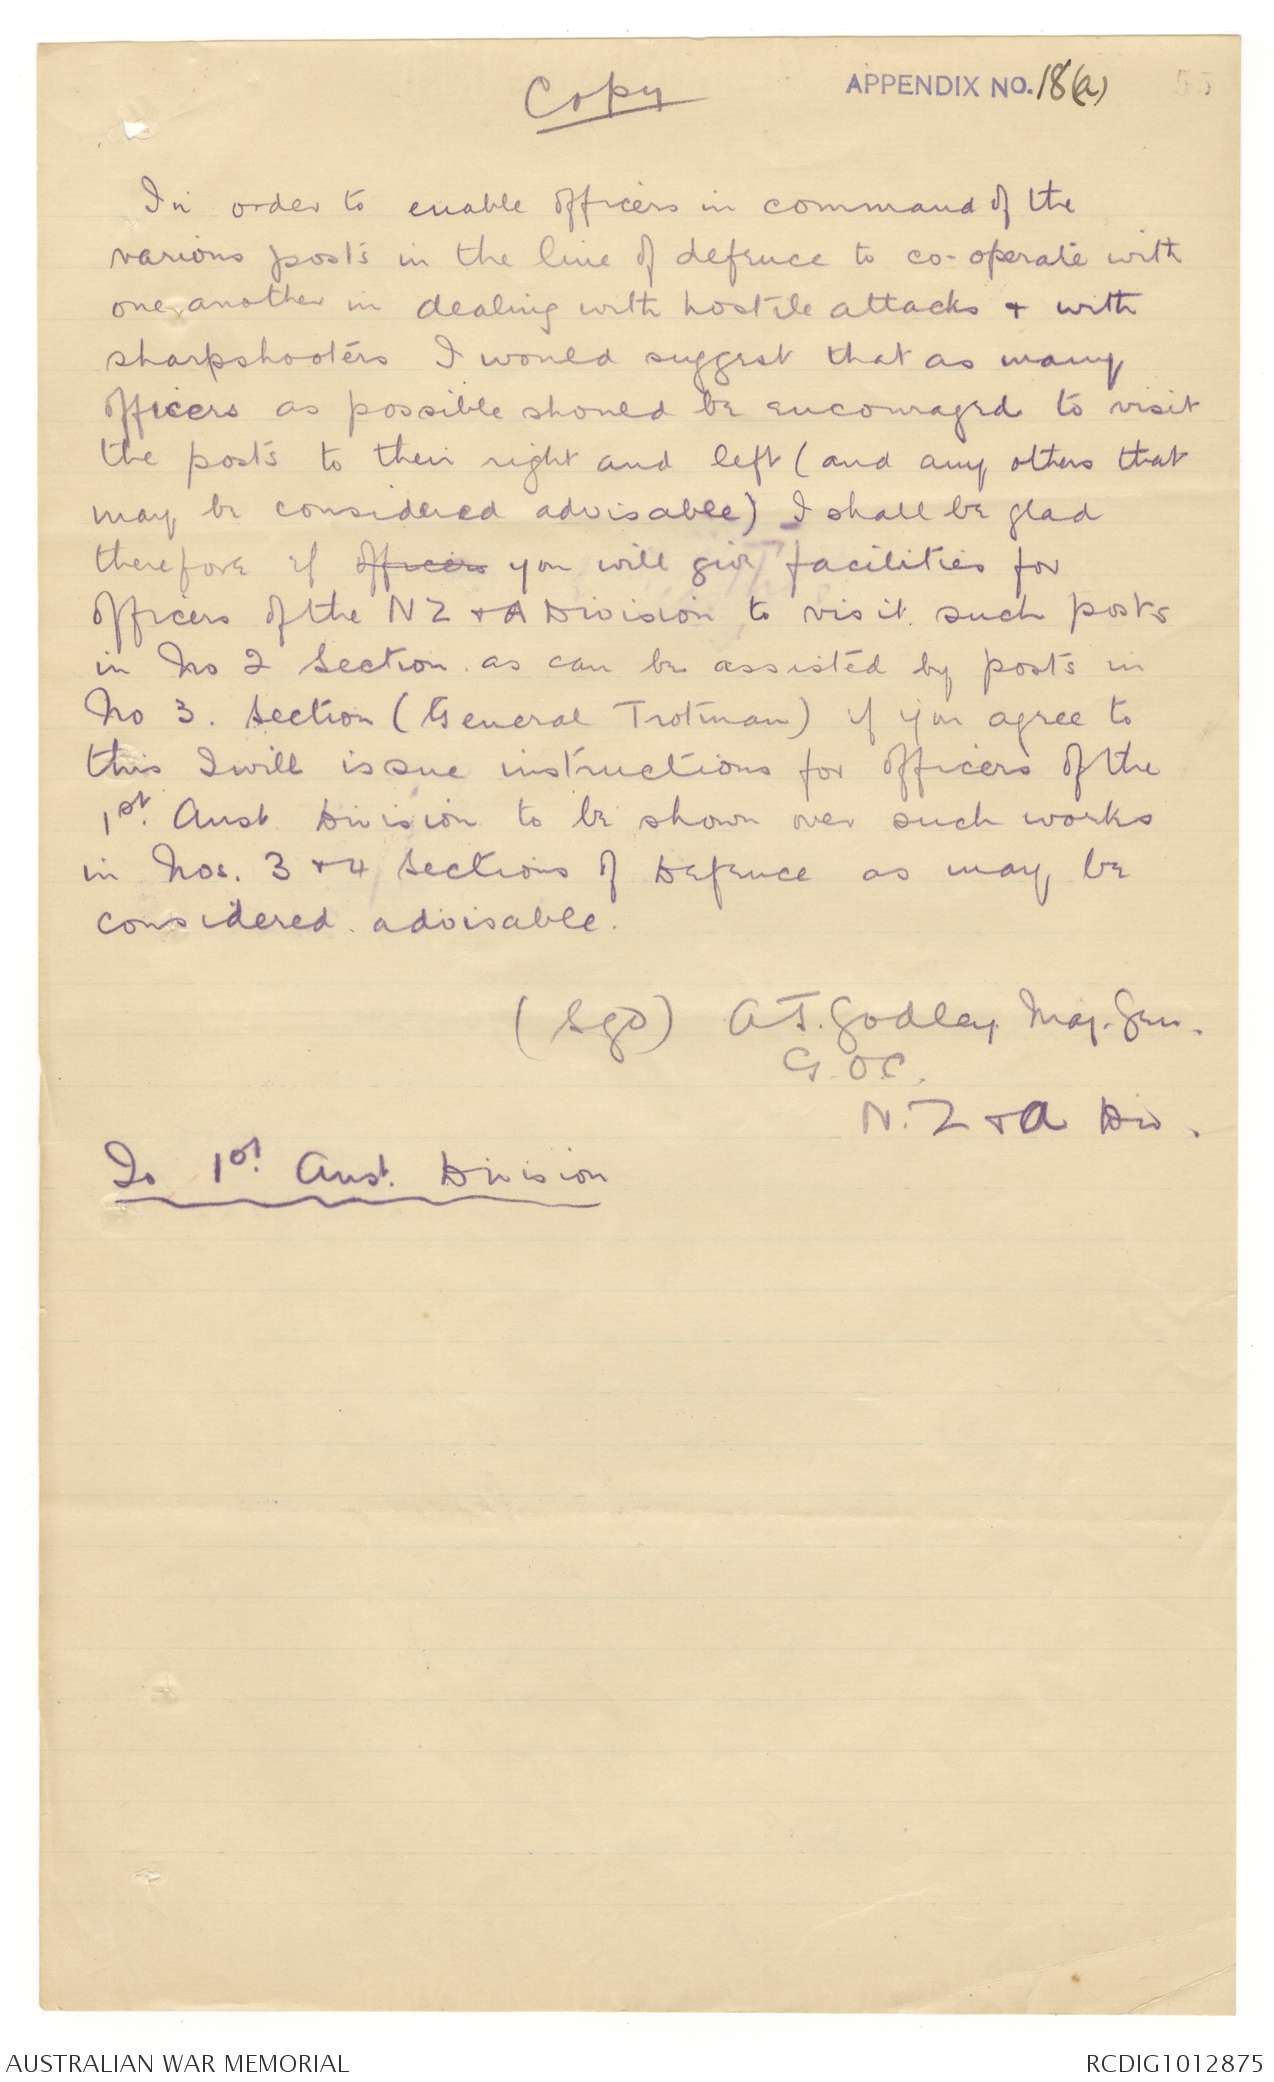 Copy
APPENDIX NO. 18(a) 55
In order to enable officers in command of the
various posts in the line of defence to co-operate with
one another in dealing with hostile attacks & with
sharpshooters I would suggest that as many
officers as possible should be encouraged to visit
the posts to their right and left (and any others that
may be considered advisable) I shall be glad
therefore if officers you will give facilities for
officers of the NZ & A Division to visit such posts
in No 2 Section as can be assisted by posts in
No 3. Section (General Trotman) if you agree to
this I will issue instructions for officers of the
1st. Aust Division to be shown over such works
in Nos. 3 & 4 Sections of Defence as may be
considered advisable.
(Sgd) A J. Godley Maj. Gen.
G.O.C.
N.Z & A Div.
To 1st. Aust. Division
AUSTRALIAN WAR MEMORIAL
RCDIG1012875